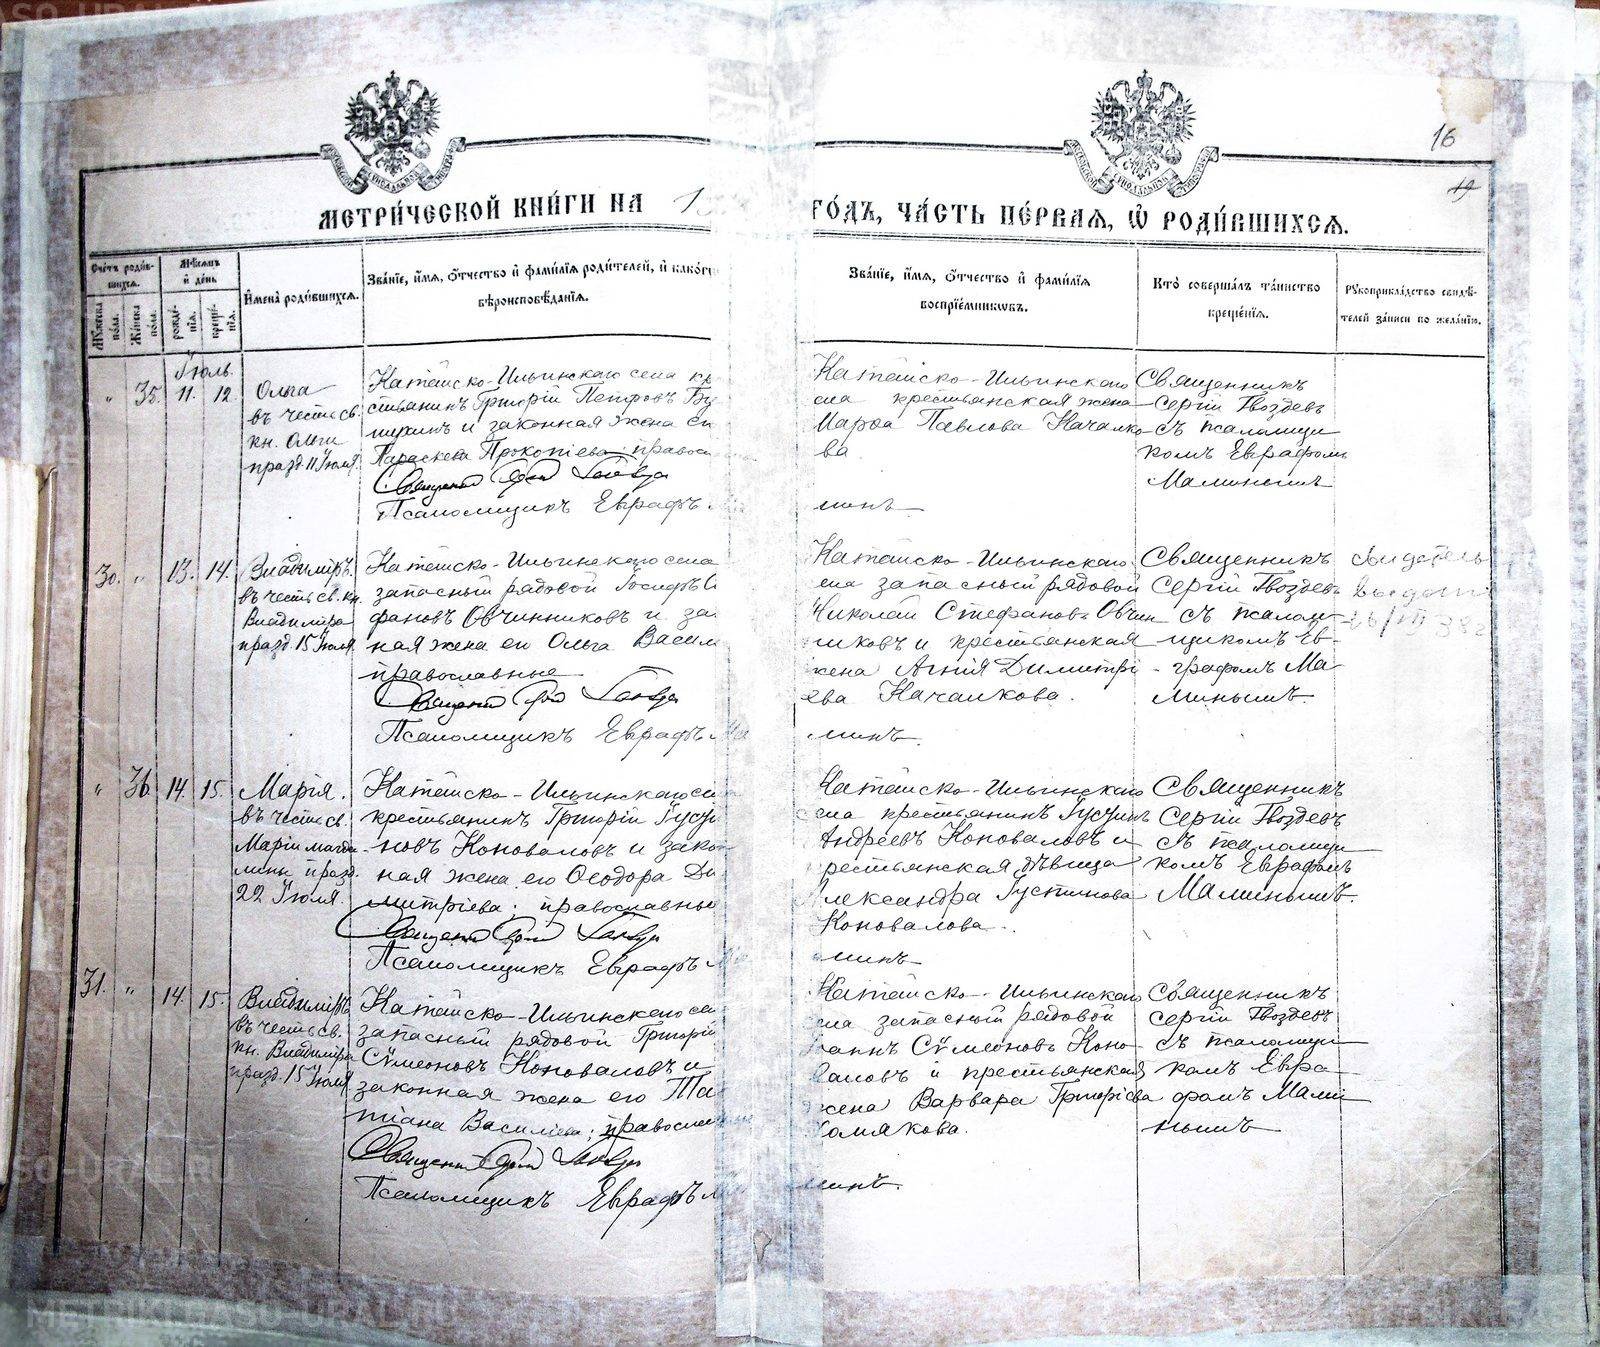 16
19
МЕТРИ́ЧЕСКОЙ КНИ́ГИ НА 1
ГО́ДЪ, ЧА́СТЬ ПЕ́РВАЯ, Ѽ РОДИ́ВШИХСЯ.
Сче́тъ роди́в-
шихся.
Мꙋ́жеска по́ла.
Же́нска по́ла.
Мѣ́сяцъ и де́нь
рожде́-
нїя.
креще́-
нїя.
И҆мена̀ роди́вшихся.
Зва́нїе, и҆́мя, ѻ҆́тчество и҆ фами́лїя роди́телей, и҆ како́гѡ
вѣроисповѣ́данїя.
Зва́нїе, и҆́мя, ѻ҆́тчество и҆ фами́лїя
воспрїе́мникѡвъ.
Кто̀ соверша́лъ та́инство
креще́нїя.
Рꙋкоприкла́дство свидѣ́-
телей за́писи по жела́нїю.
Іюль.
" 35. 11. 12.
Ольга
въ честь св.
кн. Ольги
празд. 11 Іюля
Катайско-Ильинскаго села кр
стьянинъ Григорій Петровъ
и законная жена
Параскева Прокопіева; правосл
Священ
Псаломщикъ Евграфъ Ма
Катайско-Ильинскаго
села крестьянская жена
Марѳа Павлова Качалко
ва.
минъ
Священникъ
Сергій Гвоздевъ
съ псаломщи
комъ Евграфомъ
Маминымъ
30. " 13. 14.
Владиміръ.
въ честь св. кн.
Владиміра
празд. 15 Іюля
Катайско-Ильинскаго села
запасный рядовой Іосифъ С
фановъ Овчинниковъ и за
ная жена его Ольга Васил
православные
Священ
Псаломщикъ Евграфъ Ма
Катайско-Ильинскаго
села запасный рядовой
Николай Стефановъ Овчин
никовъ и крестьянская
жена Агнія Димитрі
ева Качалкова.
минъ
Священникъ
Сергій Гвоздевъ
съ псалом
щикомъ Ев-
графомъ Ма
минымъ.
свидетель
выдан
" 36. 14. 15.
Марія.
въ честь св.
Маріи Магда-
лины празд.
22 Іюля.
Катайско-Ильинскаго се
крестьянинъ Григорій Іусти
новъ Коноваловъ и закон
ная жена его Ѳеодора Ди
митріева; православны
Священ
Псаломщикъ Евграфъ Ма
Катайско-Ильинскаго
села крестьянинъ Іустинъ
Андреевъ Коноваловъ и
крестьянская дѣвица
Александра Іустинова
Коновалова.
минъ
Священникъ
Сергій Гвоздевъ
съ псаломщи
комъ Евграфомъ
Маминымъ.
31. " 14. 15.
Владиміръ
въ честь св.
кн. Владиміра
празд. 15 Іюля
Катайско-Ильинскаго се
запасный рядовой Григорій
Сѵмеоновъ Коноваловъ и
законная жена его Та
тіана Василіева; православн
Священ
Псаломщикъ Евграфъ Ма
Катайско-Ильинскаго
села запасный рядовой
Іоаннъ Сѵмеоновъ Коно
валовъ и крестьянская
жена Варвара Григоріева
Хомякова.
минъ.
Священникъ
Сергій Гвоздевъ
съ псаломщи
комъ Евгра
фомъ Мами
нымъ
METRIKI.GASO-URAL.RU